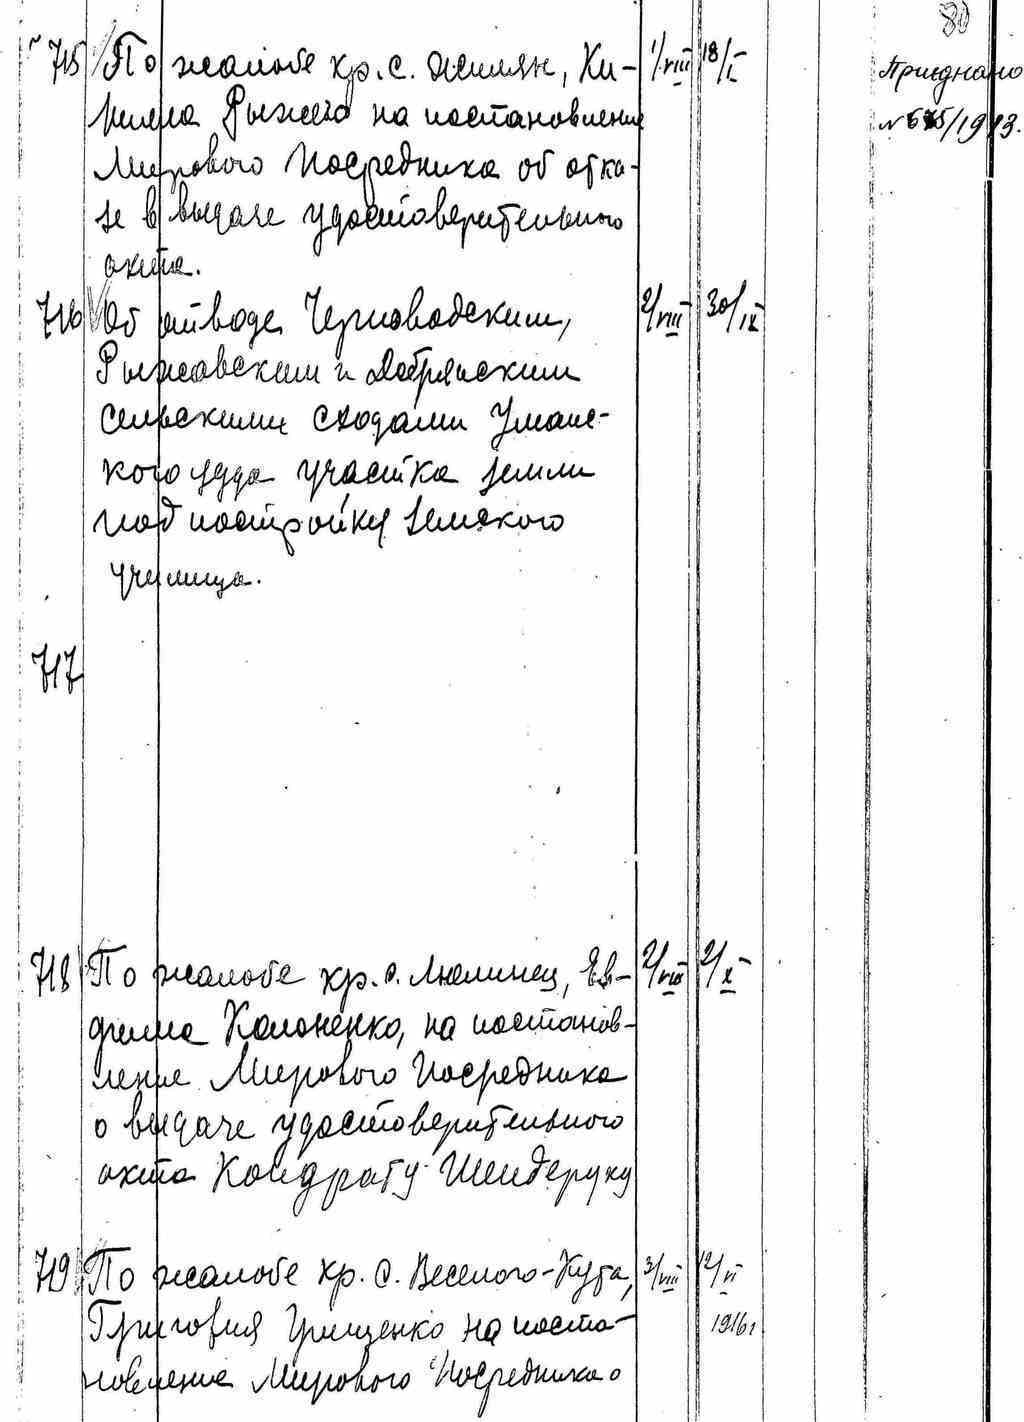 80
715 По жалобе кр. с. Жилян, Ки-
рилла Рыжего на постановление
Мирового Посредника об отка-
зе в выдаче удостоверительного
акта.
1/VIII 18/X
Приєднано
N 675/1913.
716 Об отводе Черноводским,
Рыжавским и Добрянским
сельскими сходами Уманс-
кого уезда участка земли
под постройку земского
училища.
2/VIII 30/IX
717
718 По жалобе кр. с. Люлинец, Ев-
фима Колоненко, на постанов-
ление Мирового Посредника
о выдаче удостоверительного
акта Кондрату Шендеруку
2/VIII 2/X
719 По жалобе кр. с. Веселого-Кута,
Григория Грищенко на поста-
новление Мирового Посредника о
3/VIII 12/VI
1916 г